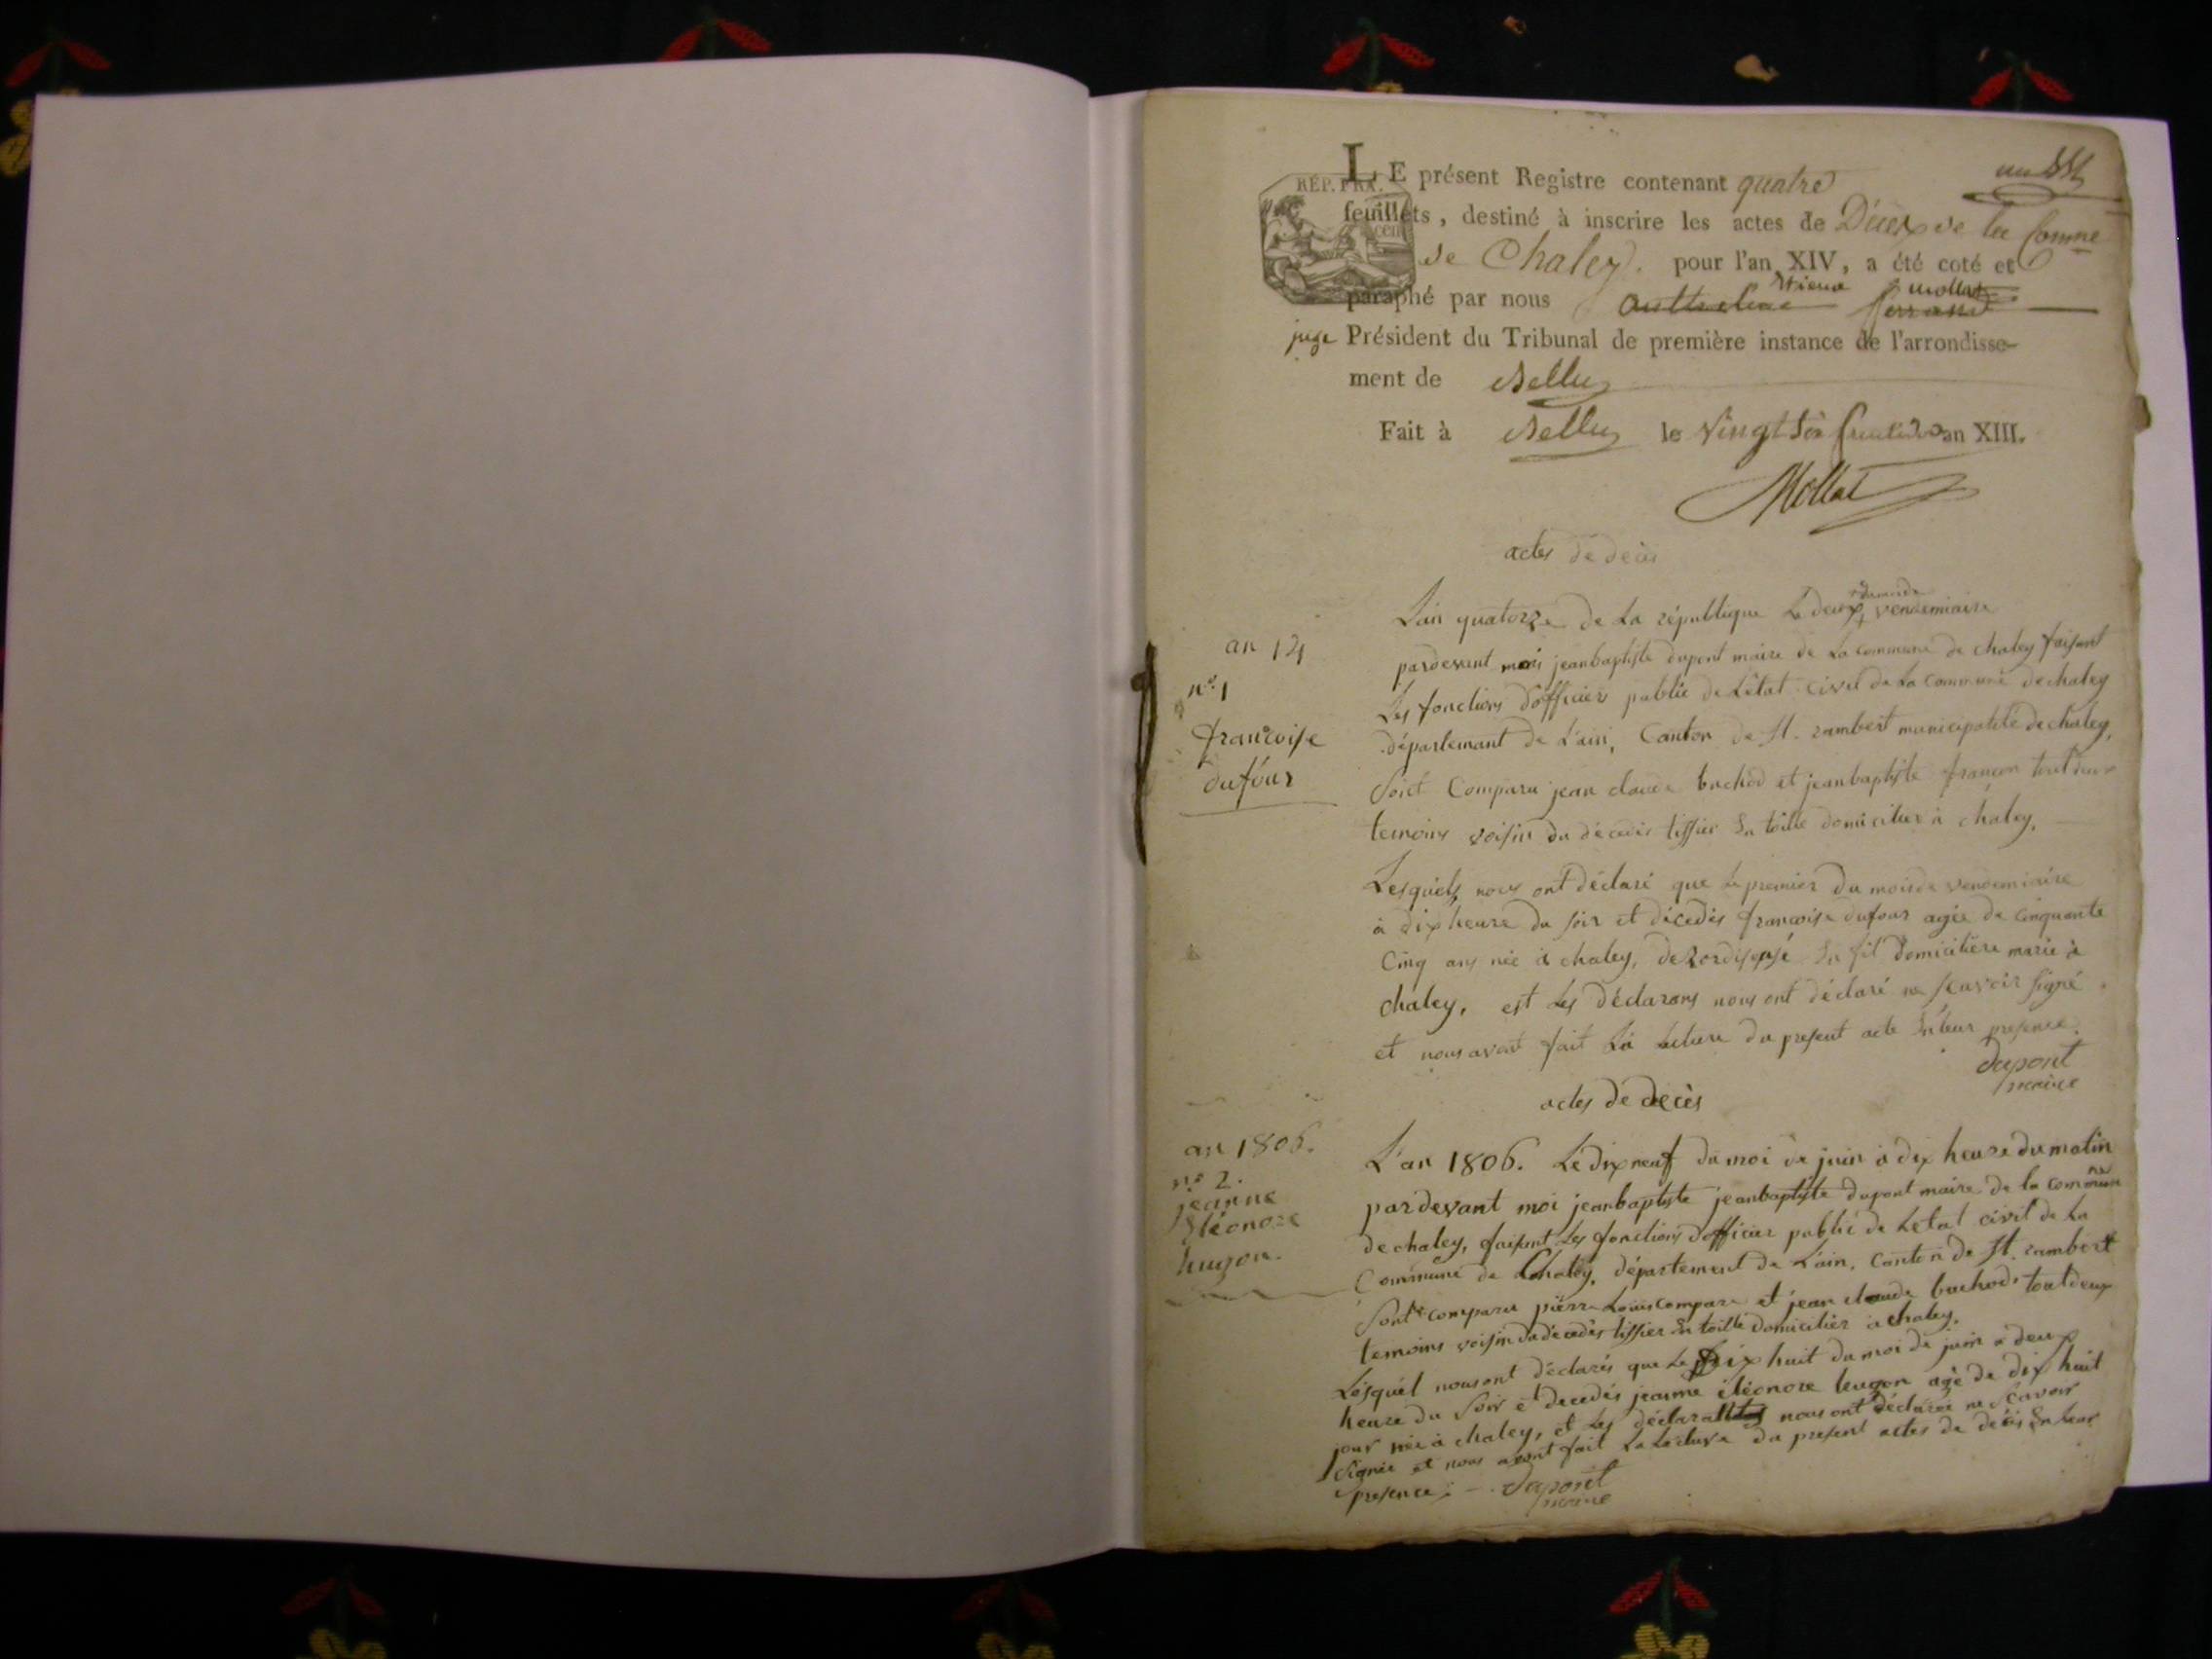 LE présent Registre contenant quatre
RÉP. FRA.
feuillets, destiné à inscrire les actes de Décès de la Comne
de Chaley. pour l'an XIV, a été coté et
paraphé par nous mollat
juge Président du Tribunal de première instance de l'arrondisse-
ment de Belley
Fait à Belley le vingt six fructidor an XIII.
Mollat
actes de décès
an 14
n.º 1
francoise
dufour
L'an quatorze de la république le deux vendemiaire
pardevant moi jeanbaptiste dupont maire de la commune de chaley faisant
Les fonctions d'officier public de L'état civil de La Commune de chaley
département de L'ain, Canton de St. rambert municipalité de chaley,
Sont Comparu jean claude buchod et jeanbaptiste françon tout deux
temoins voisin du décedés tissier en toille domicilier à chaley,
Lesquels nous ont déclaré que le premier du mois de vendemiaire
à dix heure du soir et décedés francoise dufour agée de cinquante
Cinq ans née à chaley, en fil domicilière marie à
chaley, est Les déclarans nous ont déclaré ne scavoir signé
et nous avont fait La lecture du present acte en leur presence.
dupont
maire
actes de decès
an 1806.
nº 2.
jeanne
Eléonore
hugon.
L'an 1806. Le dix neuf du moi de juin à dix heure du matin
pardevant moi jeanbaptiste jeanbaptiste dupont maire de la commune
de chaley, faisant Les fonctions d'officier public de Letat civil de La
Commune de Chaley, département de L'ain, Canton de St. rambert
Sont comparu pierre Louis compare et jean claude buchod tout deux
temoins voisin du décedés tissier en toille domicilier à chaley.
Lesquel nous ont déclarés que Le dix huit du moi de juin à deux
heure du soir è decedés jeanne éléonore hugon agé de dix huit
jour née à chaley, et Les déclarants nous ont déclarée ne scavoir
signée et nous avont fait La Lecture du present actes de decès en leur
presence; - dupont
maire